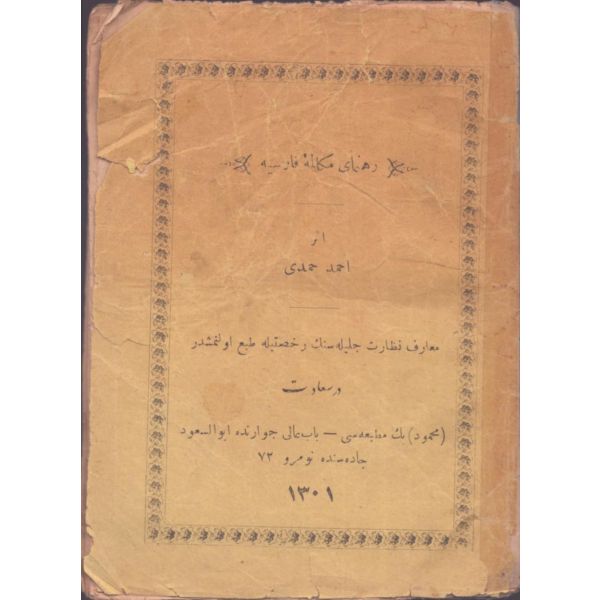 رهنمای مكالمهٔ فارسیه
اثر
احمد حمدی
معارف نظارت جلیله‌سنك رخصتیله طبع اولنمشدر
درسعادت
(محمود) بك مطبعه‌سی — باب عالی جوارنده ابوالسعود
جاده‌سنده نومرو ٧٢
١٣٠١